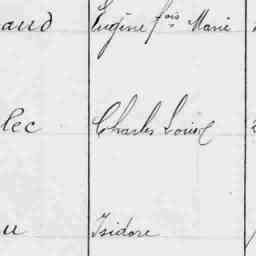 aud Eugène fois Marie
lec Charles Louis
u Isidore